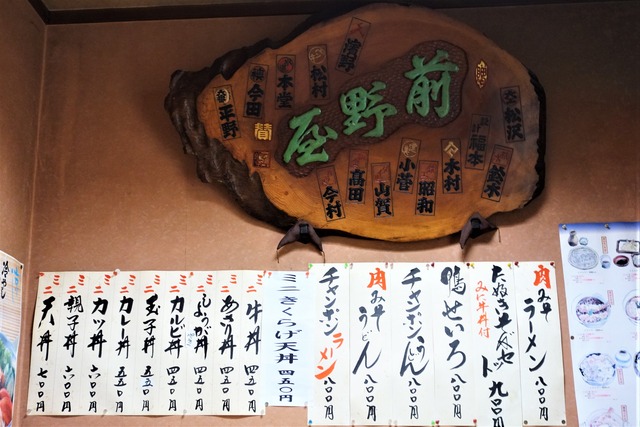 前野屋
津野
松村
本堂
横田
平野
松沢
福本
鈴木
本村
昭和
小菅
山賀
高田
今村
賛
肉み平ラーメン 八〇〇円
たぬきそばセット 九〇〇円
ミニ牛丼付
鴨せいろ 八〇〇円
チャンポンうどん 八〇〇円
肉み平うどん 八〇〇円
チャンポンラーメン 八〇〇円
ミニきくらげ天丼 四五〇円
ミニ牛丼 四五〇円
ミニあさり丼 四五〇円
ミニしょうが丼 四五〇円
ミニカルビ丼 四五〇円
ミニ玉子丼 五五〇円
ミニカレー丼 五五〇円
ミニカツ丼 六〇〇円
ミニ親子丼 六〇〇円
ミニ天丼 七〇〇円
冷やし